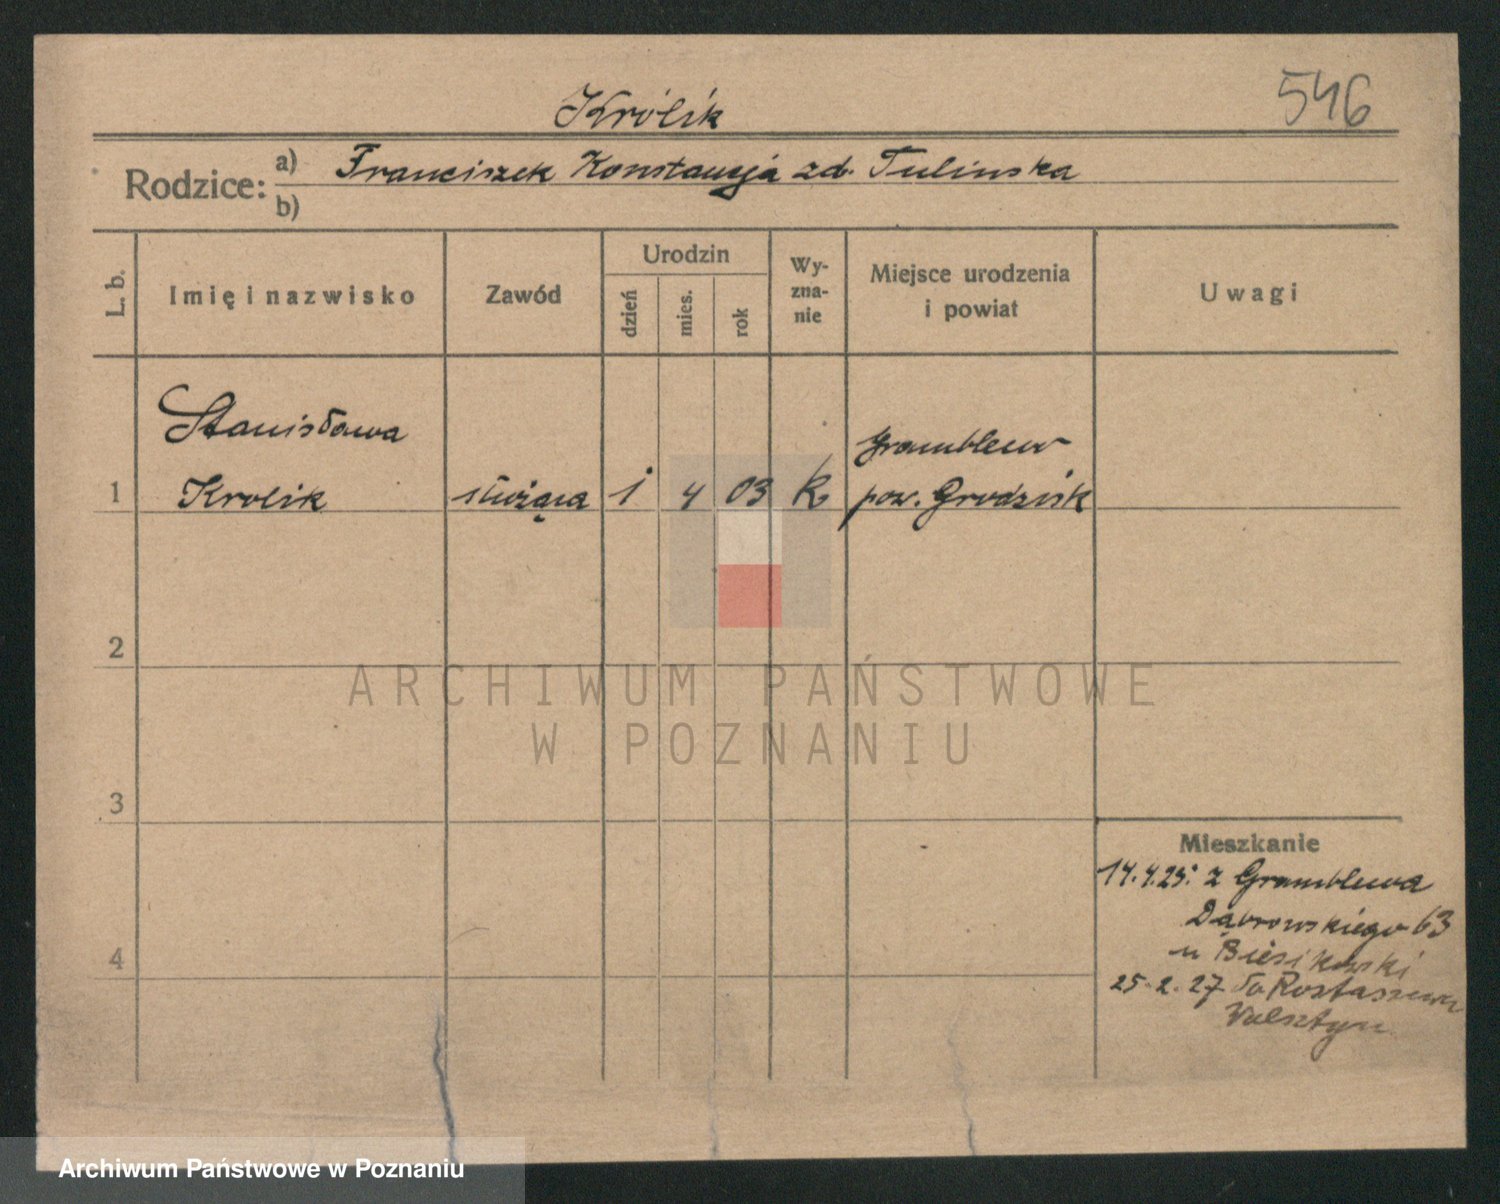 Królik
546
Rodzice:
a) Franciszek Konstancja zd. Tulinska
b)
L. b.
Imię i nazwisko
Zawód
Urodzin
dzień
mies.
rok
Wy-
zna-
nie
Miejsce urodzenia
i powiat
Uwagi
Stanisława
Gramblewo
1 Krolik służąca 1 4 03 k. pow. Grodzisk
2
3
4
ARCHIWUM PAŃSTWOWE
W POZNANIU
Mieszkanie
14.4.25. z Gramblewa
Dąbrowskiego 63
u Biesikowski
25.2.27 do
Wolsztyn
Archiwum Państwowe w Poznaniu